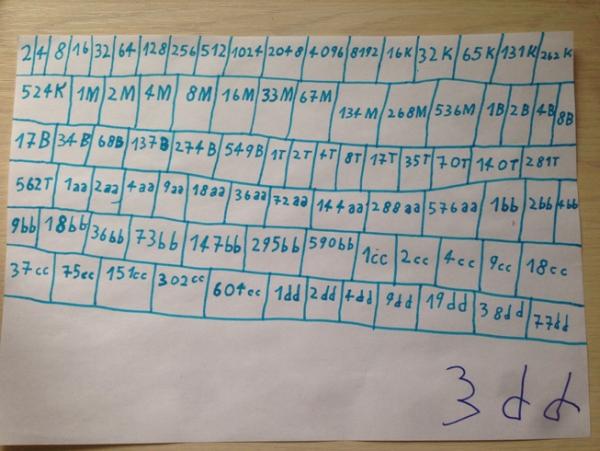 2 4 8 16 32 64 128 256 512 1024 2048 4096 8192 16K 32K 65K 131K 262K
524K 1M 2M 4M 8M 16M 33M 67M 134M 268M 536M 1B 2B 4B 8B
17B 34B 68B 137B 274B 549B 1T 2T 4T 8T 17T 35T 70T 140T 281T
562T 1aa 2aa 4aa 9aa 18aa 36aa 72aa 144aa 288aa 576aa 1bb 2bb 4bb
9bb 18bb 36bb 73bb 147bb 295bb 590bb 1cc 2cc 4cc 9cc 18cc
37cc 75cc 151cc 302cc 604cc 1dd 2dd 4dd 9dd 19dd 38dd 77dd
3dd